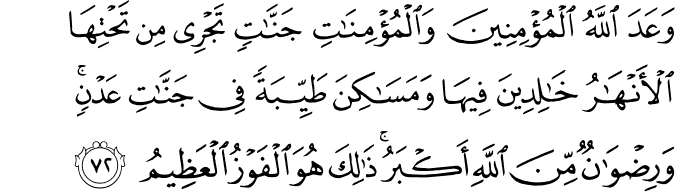 وَعَدَ ٱللَّهُ ٱلْمُؤْمِنِينَ وَٱلْمُؤْمِنَٰتِ جَنَّٰتٍ تَجْرِى مِن تَحْتِهَا
ٱلْأَنْهَٰرُ خَٰلِدِينَ فِيهَا وَمَسَٰكِنَ طَيِّبَةً فِى جَنَّٰتِ عَدْنٍ ۚ
وَرِضْوَٰنٌ مِّنَ ٱللَّهِ أَكْبَرُ ۚ ذَٰلِكَ هُوَ ٱلْفَوْزُ ٱلْعَظِيمُ ٧٢